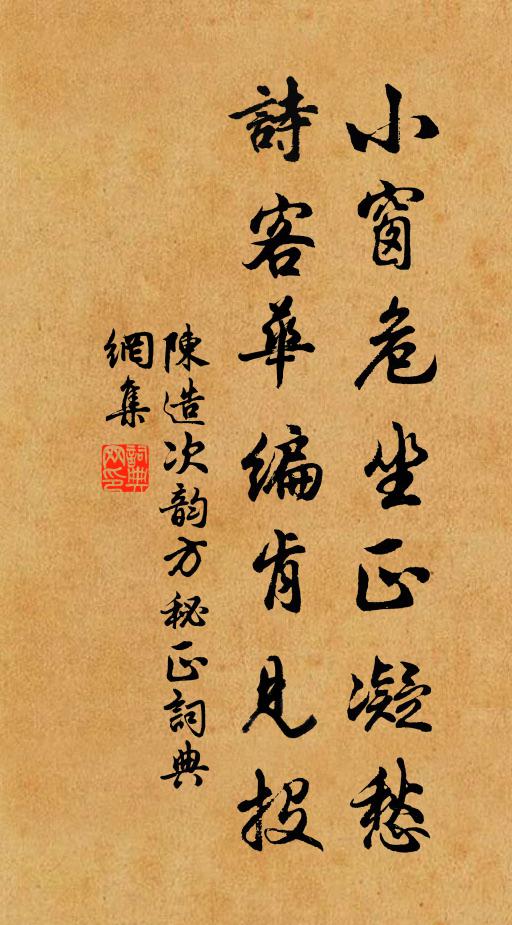 小窗危坐正凝愁
詩客華編肯見投
陳造次韵方秘正詞典
網集
詞典
网印